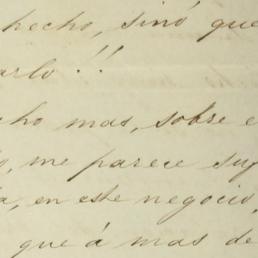 hecho, sinó que
arlo!!
cho mas, sobre e
o, me parece sup
a, en este negocio,
que á mas de